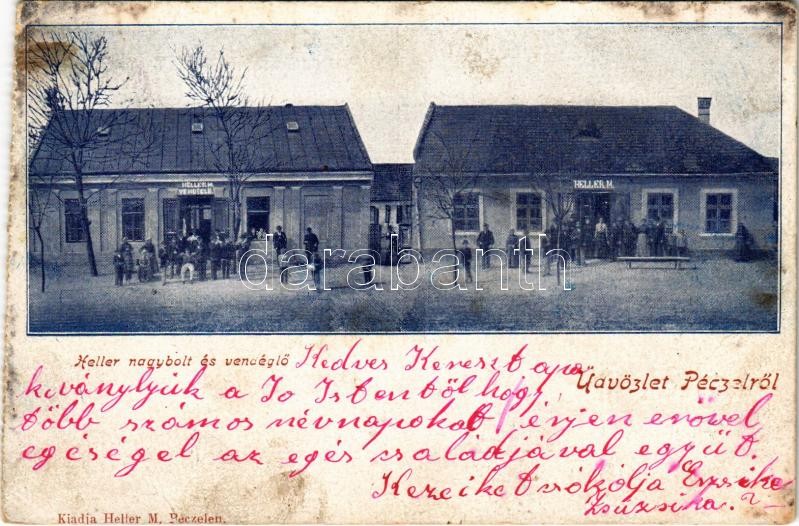 HELLER M.
VENDÉGLŐ
HELLER M.
darabanth
Heller nagybolt és vendéglő
Üdvözlet Péczelről
Kedves Kereszt apa
kiványlyuk a Jo Istentől hogy
több számos névnapokat érjen erővel
egéségel az egés családjával együt.
Kezeiket csokolja Erzsike
Zsuzsika.
Kiadja Heller M. Péczelen.